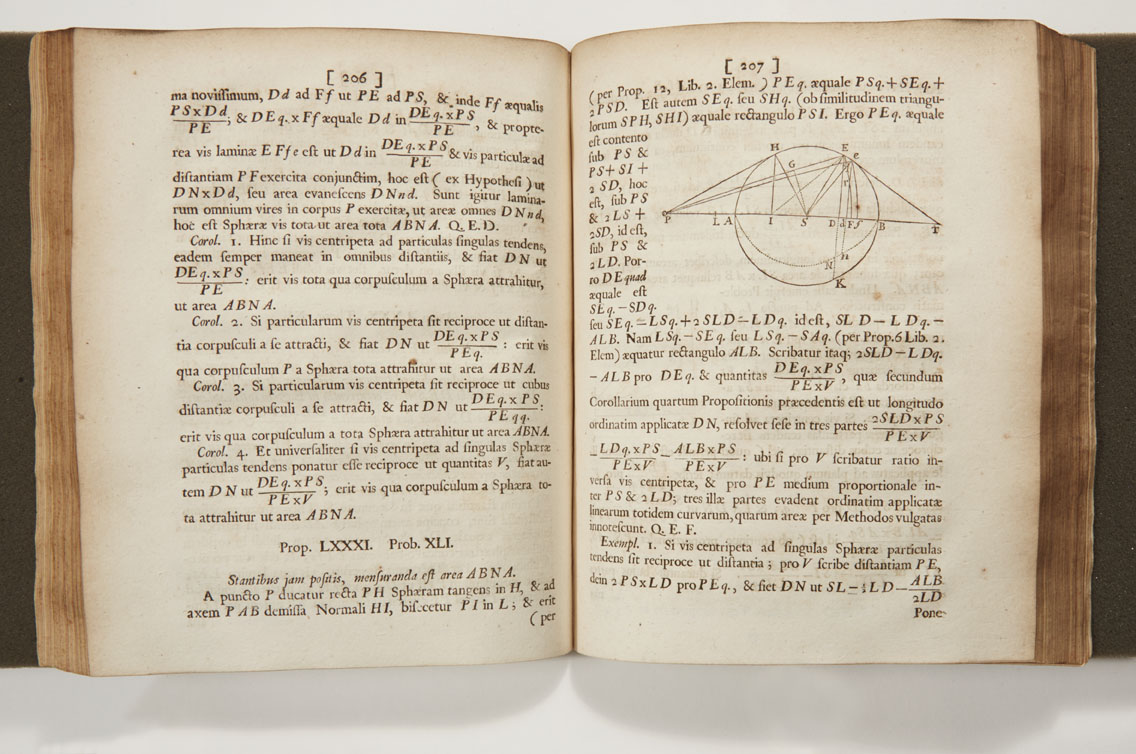 [ 206 ]
ma novissimum, Dd ad Ff ut PE ad PS, & inde Ff æqualis
PS x Dd / PE; & DEq. x Ff æquale Dd in DEq. x PS / PE, & propte-
rea vis laminæ EFfe est ut Dd in DEq. x PS / PE & vis particulæ ad
distantiam PF exercita conjunctim, hoc est ( ex Hypothesi ) ut
DN x Dd, seu area evanescens DNnd. Sunt igitur lamina-
rum omnium vires in corpus P exercitæ, ut areæ omnes DNnd,
hoc est Sphæræ vis tota ut area tota ABNA. Q. E. D.
Corol. 1. Hinc si vis centripeta ad particulas singulas tendens,
eadem semper maneat in omnibus distantiis, & fiat DN ut
DEq. x PS / PE : erit vis tota qua corpusculum a Sphæra attrahitur,
ut area ABNA.
Corol. 2. Si particularum vis centripeta sit reciproce ut distan-
tia corpusculi a se attracti, & fiat DN ut DEq. x PS / PEq. : erit vis
qua corpusculum P a Sphæra tota attrahitur ut area ABNA.
Corol. 3. Si particularum vis centripeta sit reciproce ut cubus
distantiæ corpusculi a se attracti, & fiat DN ut DEq. x PS / PEqq. :
erit vis qua corpusculum a tota Sphæra attrahitur ut area ABNA.
Corol. 4. Et universaliter si vis centripeta ad singulas Sphæræ
particulas tendens ponatur esse reciproce ut quantitas V, fiat au-
tem DN ut DEq. x PS / PE x V ; erit vis qua corpusculum a Sphæra to-
ta attrahitur ut area ABNA.
Prop. LXXXI. Prob. XLI.
Stantibus jam positis, mensuranda est area ABNA.
A puncto P ducatur recta PH Sphæram tangens in H, & ad
axem PAB demissa Normali HI, bisecetur PI in L; & erit
(per
[ 207 ]
(per Prop. 12, Lib. 2. Elem. ) PEq. æquale PSq. + SEq. +
2PSD. Est autem SEq. seu SHq. (ob similitudinem triangu-
lorum SPH, SHI) æquale rectangulo PSI. Ergo PEq. æquale
est contento
sub PS &
PS + SI +
2 SD, hoc
est, sub PS
& 2LS +
2SD, id est,
sub PS &
2LD. Por-
ro DE quad
æquale est
SEq. - SDq.
H
E
e
G
r
P
L
A
I
S
D
d
F
f
B
T
n
N
K
seu SEq. - LSq. + 2SLD - LDq. id est, SLD - LDq. -
ALB. Nam LSq. - SEq. seu LSq. - SAq. (per Prop. 6 Lib. 2.
Elem) æquatur rectangulo ALB. Scribatur itaq; 2SLD - LDq.
- ALB pro DEq. & quantitas DEq. x PS / PE x V, quæ secundum
Corollarium quartum Propositionis præcedentis est ut longitudo
ordinatim applicatæ DN, resolvet sese in tres partes 2SLD x PS / PE x V
- LDq. x PS / PE x V - ALB x PS / PE x V : ubi si pro V scribatur ratio in-
versa vis centripetæ, & pro PE medium proportionale in-
ter PS & 2LD; tres illæ partes evadent ordinatim applicatæ
linearum totidem curvarum, quarum areæ per Methodos vulgatas
innotescunt. Q. E. F.
Exempl. 1. Si vis centripeta ad singulas Sphæræ particulas
tendens sit reciproce ut distantia; pro V scribe distantiam PE,
dein 2PS x LD pro PEq., & fiet DN ut SL - ½LD - ALB / 2LD
Pone